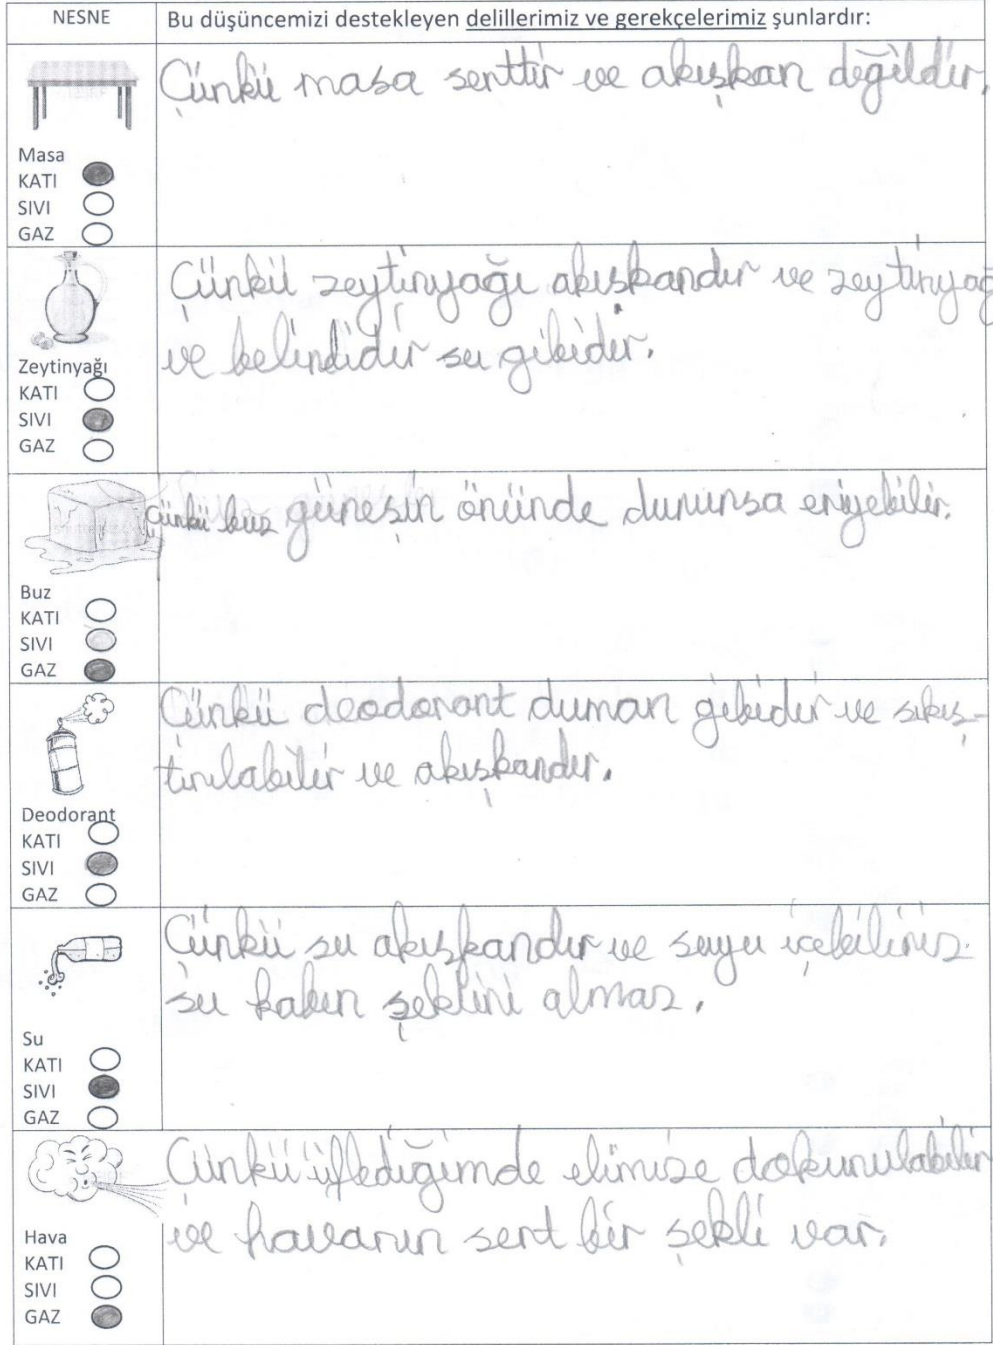 NESNE
Bu düşüncemizi destekleyen delillerimiz ve gerekçelerimiz şunlardır:
Çünkü masa serttir ve akışkan değildir.
Masa
KATI
SIVI
GAZ
Çünkü zeytinyağı akışkandır ve zeytinyağ
ve belindidir su gibidir.
Zeytinyağı
KATI
SIVI
GAZ
Çünkü buz güneşin önünde durunsa eriyebilir.
Buz
KATI
SIVI
GAZ
Çünkü deodorant duman gibidir ve sıkış-
tırılabilir ve akışkandır.
Deodorant
KATI
SIVI
GAZ
Çünkü su akışkandır ve suyu içebiliriz.
su kabın şeklini almaz.
Su
KATI
SIVI
GAZ
Çünkü üflediğimde elimize dokunulabilir
ve havanın sert bir şekli var.
Hava
KATI
SIVI
GAZ